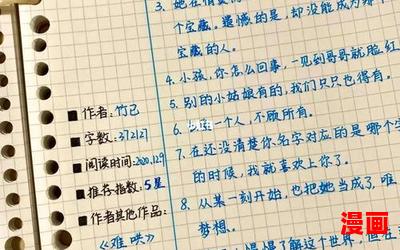 3. 她在情窦
个宝藏。遗憾的是,却没能成为
宝藏的人。
4. 小孩,你怎么回事,一见到哥哥就脸红
5. 别的小姑娘有的,我们只只也得有。
6. 一个人,不顾所有。
7. 在还没清楚你名字对应的是哪个
的时候,我就喜欢上你了。
8. 从某一刻开始,也把她当成了唯
梦想。
慢慢了解这个世界,但在
■作者:竹已
■字数:372127
■阅读时间:2020.12.9
■推荐指数:5星
■作者其他作品:
《难哄》
漫画